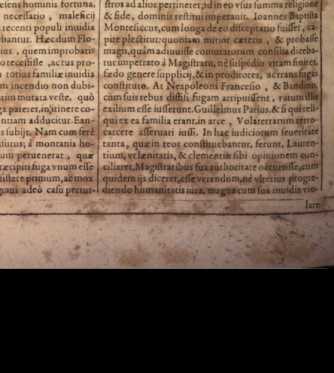 ciens hominis fortuna.
necessario, maleficij
recenti populi inuidia
bantur. Hæcdum Flo-
ius, quem improbatis
o recesisse, actus pro-
totius familiæ inuidia
m incendio non dubi-
sin mutata veste, quò
pareret, in itinere co-
entiam adducitur. Ean-
subijt. Nam cum ferè
a montanis ho-
um peruenerat, quæ
ræcipiti fuga vnum esse
sistere primum, ac mox
adeò casu pertur-
stros ad alios pertineret, id in eo vsus summa religione
& fide, dominis restitui imperauit. Ioannes Baptista
Montesiccus, cum longa de eo disceptatio fuisset, cæ-
pite plectitur: quoniam mitior cæteris, & probasse
magis, quàm adiuuisse coniuratorum consilia diceba-
tur impetrato à Magistratu, nè suspedio vitam finiret,
fædo genere supplicij, & in proditores, ac transfugas
constituto. At Neapoleoni Francesio, & Bandini,
cum suis rebus diffisi fugam arripuissent,
exilium esse iussere. Guilielmus Parius, & si quinter
qui ex ea familia erant, in arce, Volaterranum
carcere asseruari iussi. In hac iudiciorum seueritate
tanta, quæ in reos constituebantur, ferunt, Lauren-
tium, vt lenitatis, & clementiæ sibi opinionem con-
ciliaret, Magistratibus sua authoritate occurrisse, cum
quidem ijs diceret, esse verendum, nè vlterius progre-
diendo humanitatis iura, magna cum sua inuidia vio-
lare